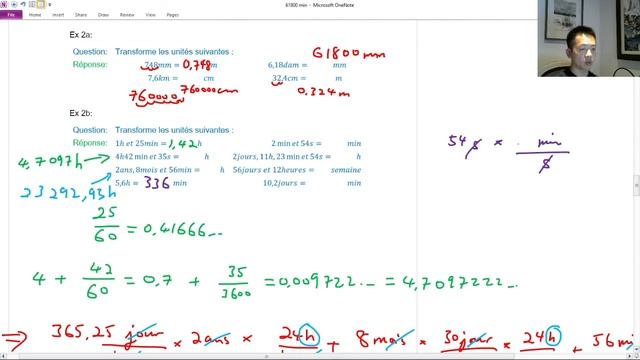 61800 min - Microsoft OneNote
PAGES
Ex 2a:
Question: Transforme les unités suivantes :
61800 mm
Réponse: 748mm = 0,748 m 6,18dam = mm
7,6km = cm 32,4cm = m
760000 760000cm 0.324 m
Ex 2b:
Question: Transforme les unités suivantes :
Réponse: 1h et 25min = 1,42 h 2 min et 54s = min
54 s × min
s
4,7097h → 4h42 min et 35s = h 2jours, 11h, 23 min et 54s = h
2ans, 8mois et 56min = h 56jours et 12heures = semaine
23292,93h
5,6h = 336 min 10,2jours = min
25
60 = 0,41666...
4 + 42
60 = 0,7 + 35
3600 = 0,009722... = 4,7097222...
⇒ 365,25 jour × 2ans × 24h + 8 mois × 30jour × 24h + 56 mi